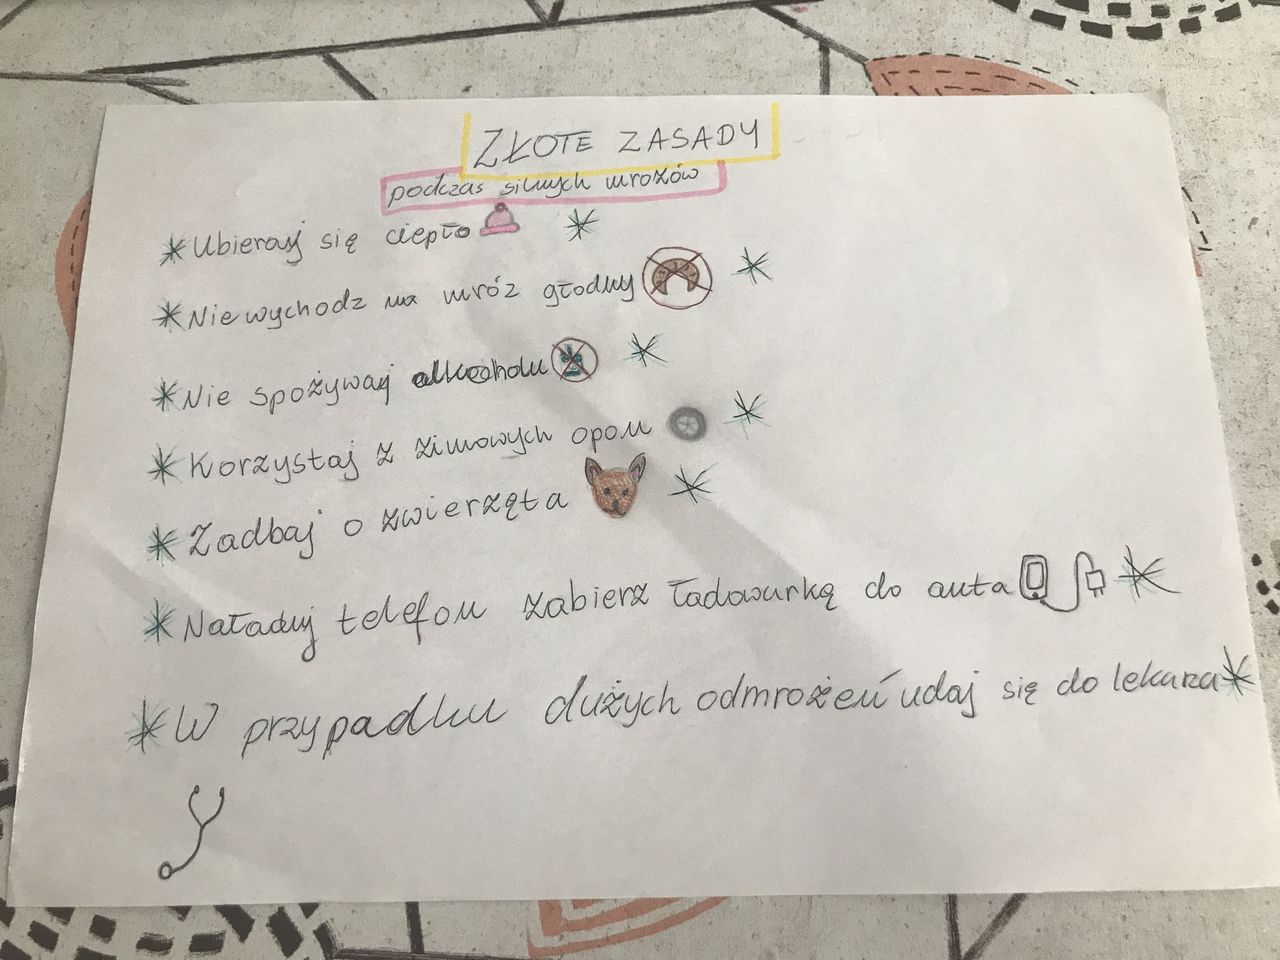 ZŁOTE ZASADY
podczas silnych mrozów
Ubieraj się ciepło
Nie wychodz na mróz głodny
Nie spożywaj alkocholu
Korzystaj z zimowych opon
Zadbaj o zwierzęta
Naładuj telefon zabierz ładowarkę do auta
W przypadku dużych odmrożeń udaj się do lekarza